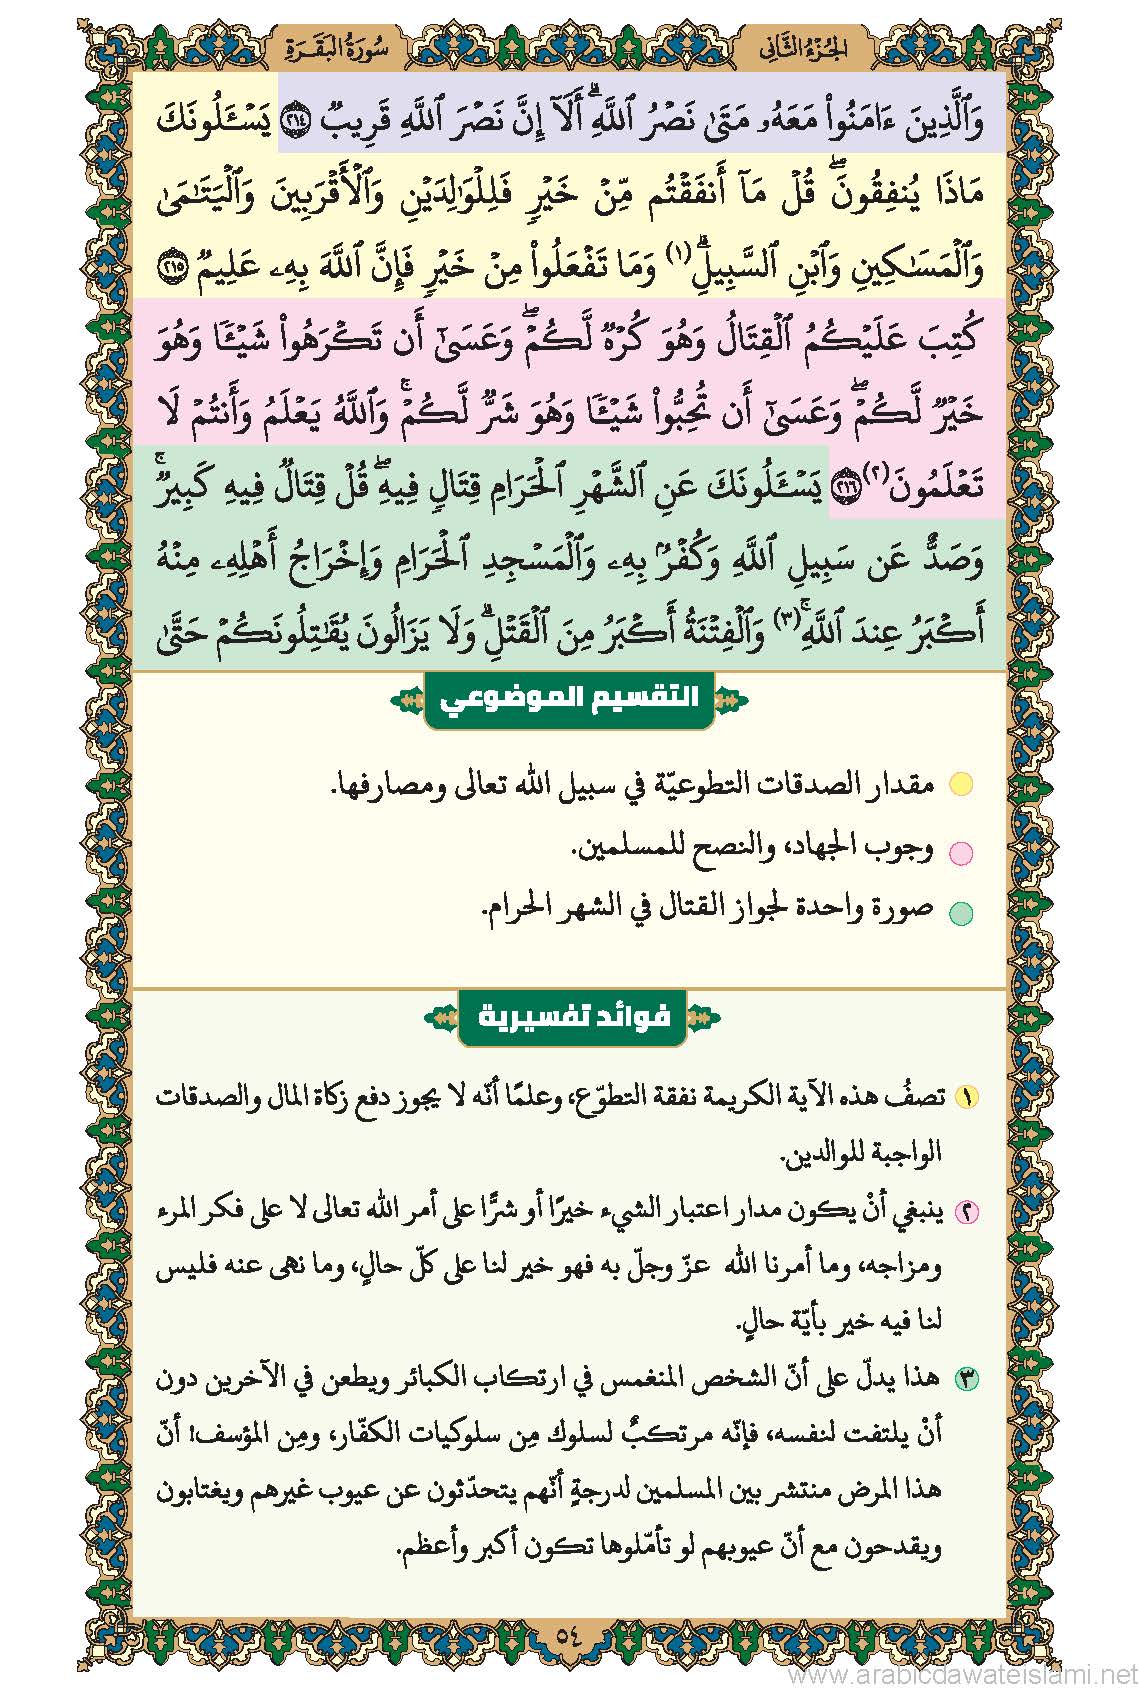 الجُزْءُ الثَّانِي
سُورَةُ البَقَرَةِ
وَٱلَّذِينَ ءَامَنُوا۟ مَعَهُۥ مَتَىٰ نَصْرُ ٱللَّهِۗ أَلَآ إِنَّ نَصْرَ ٱللَّهِ قَرِيبٌ ٢١٤ يَسْـَٔلُونَكَ
مَاذَا يُنفِقُونَۖ قُلْ مَآ أَنفَقْتُم مِّنْ خَيْرٍ فَلِلْوَٰلِدَيْنِ وَٱلْأَقْرَبِينَ وَٱلْيَتَـٰمَىٰ
وَٱلْمَسَـٰكِينِ وَٱبْنِ ٱلسَّبِيلِۗ (١) وَمَا تَفْعَلُوا۟ مِنْ خَيْرٍ فَإِنَّ ٱللَّهَ بِهِۦ عَلِيمٌ ٢١٥
كُتِبَ عَلَيْكُمُ ٱلْقِتَالُ وَهُوَ كُرْهٌ لَّكُمْۖ وَعَسَىٰٓ أَن تَكْرَهُوا۟ شَيْـًٔا وَهُوَ
خَيْرٌ لَّكُمْۖ وَعَسَىٰٓ أَن تُحِبُّوا۟ شَيْـًٔا وَهُوَ شَرٌّ لَّكُمْۚ وَٱللَّهُ يَعْلَمُ وَأَنتُمْ لَا
تَعْلَمُونَ (٢) ٢١٦ يَسْـَٔلُونَكَ عَنِ ٱلشَّهْرِ ٱلْحَرَامِ قِتَالٍ فِيهِۖ قُلْ قِتَالٌ فِيهِ كَبِيرٌۚ
وَصَدٌّ عَن سَبِيلِ ٱللَّهِ وَكُفْرٌۢ بِهِۦ وَٱلْمَسْجِدِ ٱلْحَرَامِ وَإِخْرَاجُ أَهْلِهِۦ مِنْهُ
أَكْبَرُ عِندَ ٱللَّهِۚ (٣) وَٱلْفِتْنَةُ أَكْبَرُ مِنَ ٱلْقَتْلِۗ وَلَا يَزَالُونَ يُقَـٰتِلُونَكُمْ حَتَّىٰ
التقسيم الموضوعي
مقدار الصدقات التطوعيّة في سبيل الله تعالى ومصارفها.
وجوب الجهاد، والنصح للمسلمين.
صورة واحدة لجواز القتال في الشهر الحرام.
فوائد تفسيرية
١ تصفُ هذه الآية الكريمة نفقة التطوّع، وعلمًا أنّه لا يجوز دفع زكاة المال والصدقات
الواجبة للوالدين.
٢ ينبغي أنْ يكون مدار اعتبار الشيء خيرًا أو شرًّا على أمر الله تعالى لا على فكر المرء
ومزاجه، وما أمرنا الله عزّ وجلّ به فهو خير لنا على كلّ حالٍ، وما نهى عنه فليس
لنا فيه خير بأيّة حالٍ.
٣ هذا يدلّ على أنّ الشخص المنغمس في ارتكاب الكبائر ويطعن في الآخرين دون
أنْ يلتفت لنفسه، فإنّه مرتكبٌ لسلوك مِن سلوكيات الكفّار، ومِن المؤسف! أنّ
هذا المرض منتشر بين المسلمين لدرجةٍ أنّهم يتحدّثون عن عيوب غيرهم ويغتابون
ويقدحون مع أنّ عيوبهم لو تأمّلوها تكون أكبر وأعظم.
٥٤
www.arabicdawateislami.net